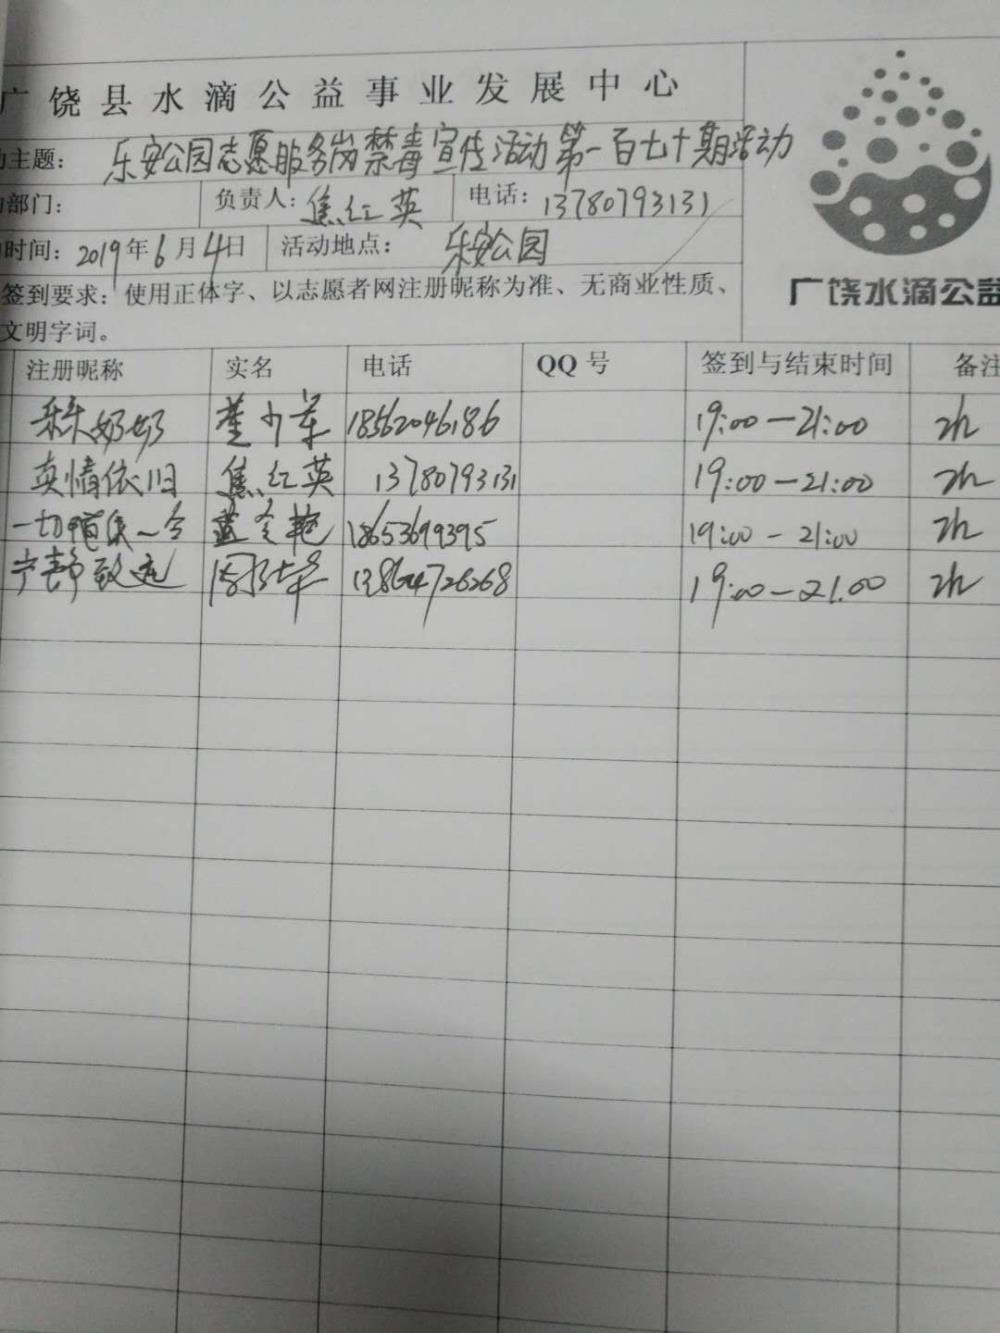 广饶县水滴公益事业发展中心
动主题: 乐安公园志愿服务岗禁毒宣传活动第一百七十期活动
部门: 负责人: 焦红英 电话: 13780793131
时间: 2019年6月4日 活动地点: 乐安公园
签到要求: 使用正体字、以志愿者网注册昵称为准、无商业性质、
文明字词。
广饶水滴公益
注册昵称 实名 电话 QQ号 签到与结束时间 备注
奶奶 董少军 18562046186 19:00—21:00 2h
真情依旧 焦红英 13780793131 19:00—21:00 2h
一切随缘 18653699395 19:00—21:00 2h
宁静致远 13864726268 19:00—21.00 2h